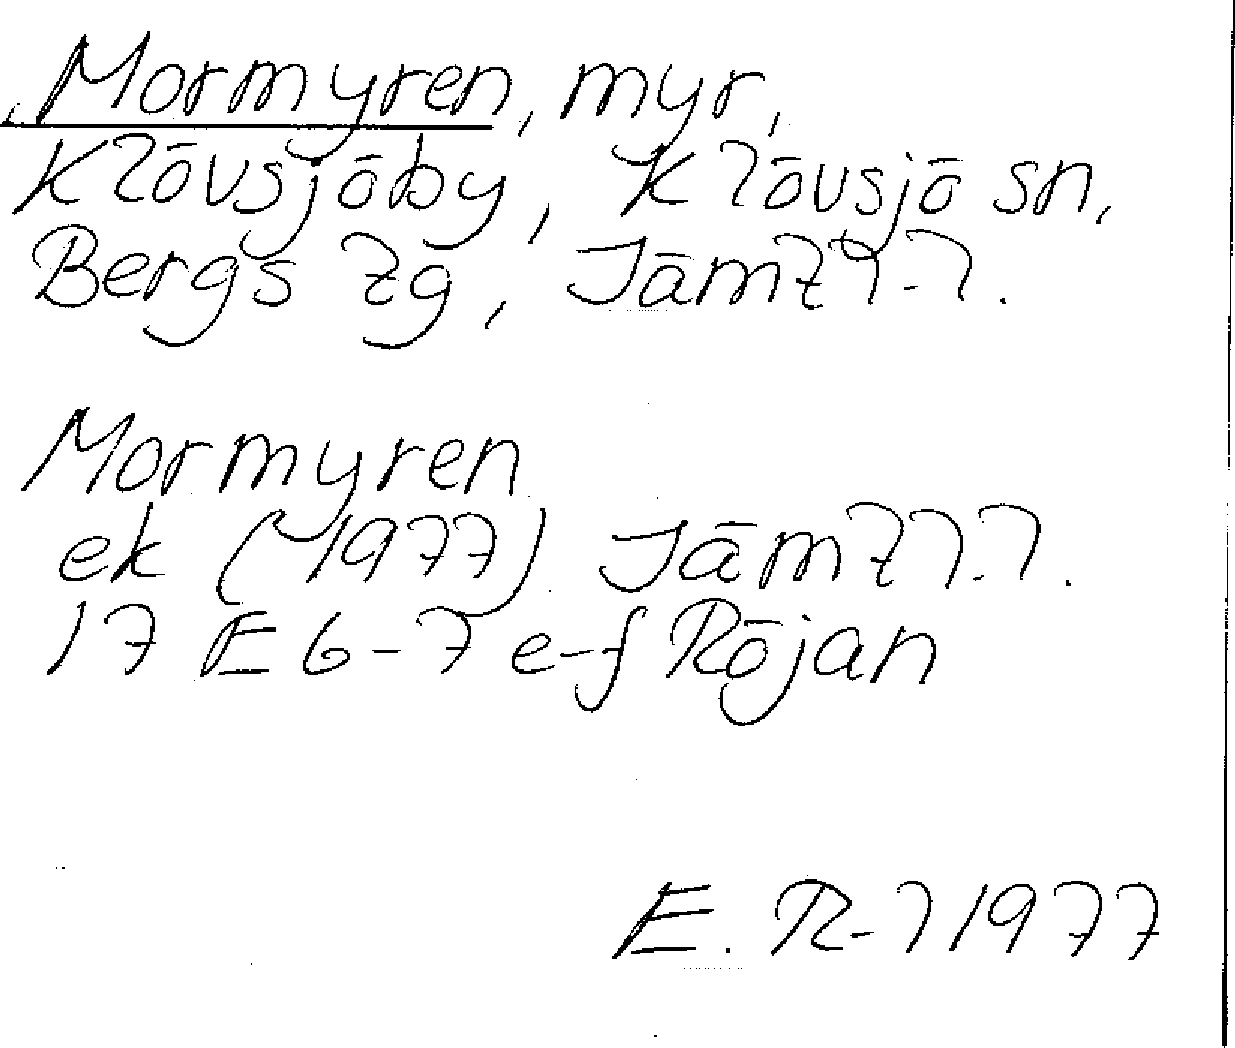 Mormyren, myr,
Klövsjöby, Klövsjö sn,
Bergs tg, Jämtl.
Mormyren
ek (1977) Jämtl.
17 E 6-7 e-f Röjan
E. R-l 1977